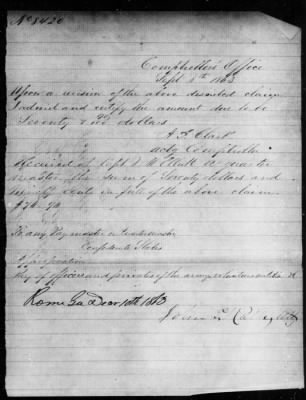 No 8420
Comptroller's Office
Sept 8th 1863
Upon a revision of the above described claim
I admit and certify the amount due to be
Seventy & dollars
Clark
actg Comptroller
Received of Capt Quarter
master the sum of Seventy dollars and
cents in full of the above claim
To any Pay master or Quartermaster
Confederate States
Appropriation
Pay of officers and privates of the army volunteers militia &c
Rome Ga Decr 10th 1863
John